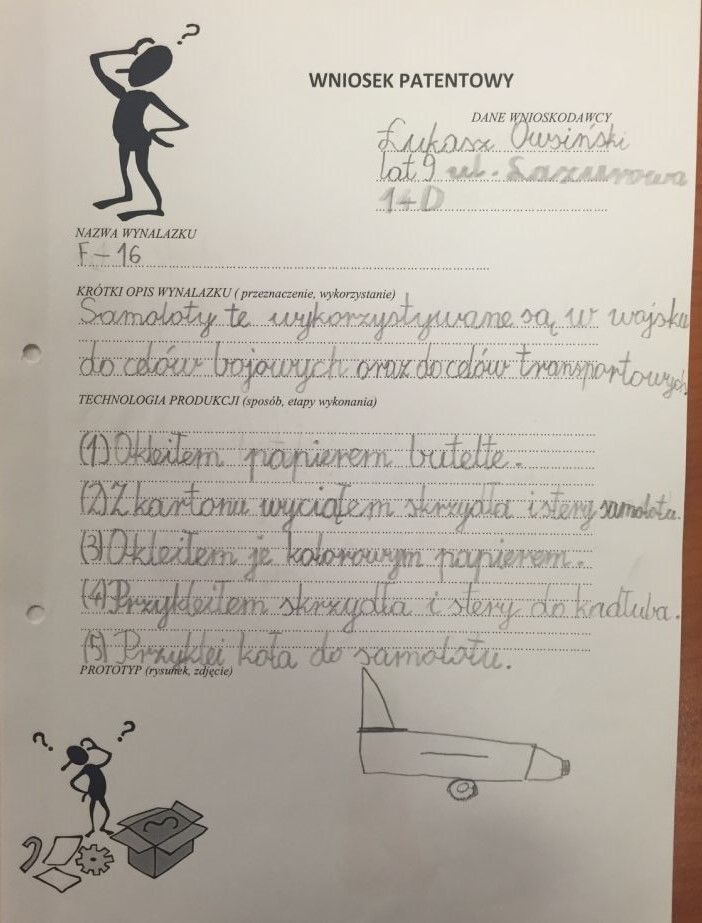 WNIOSEK PATENTOWY
DANE WNIOSKODAWCY
Łukasz Owsiński
lat 9 ul. Lazurowa
14D
NAZWA WYNALAZKU
F-16
KRÓTKI OPIS WYNALAZKU ( przeznaczenie, wykorzystanie)
Samoloty te wykorzystywane są w wojsku
do celów bojowych oraz do celów transportowych.
TECHNOLOGIA PRODUKCJI (sposób, etapy wykonania)
(1) Okleiłem papierem butelte.
(2) Z kartonu wyciąłem skrzydła i stery samolotu.
(3) Okleiłem je kolorowym papierem.
(4) Przykleiłem skrzydła i stery do kadłuba.
(5) Przyklei koła do samolotu.
PROTOTYP (rysunek, zdjęcie)